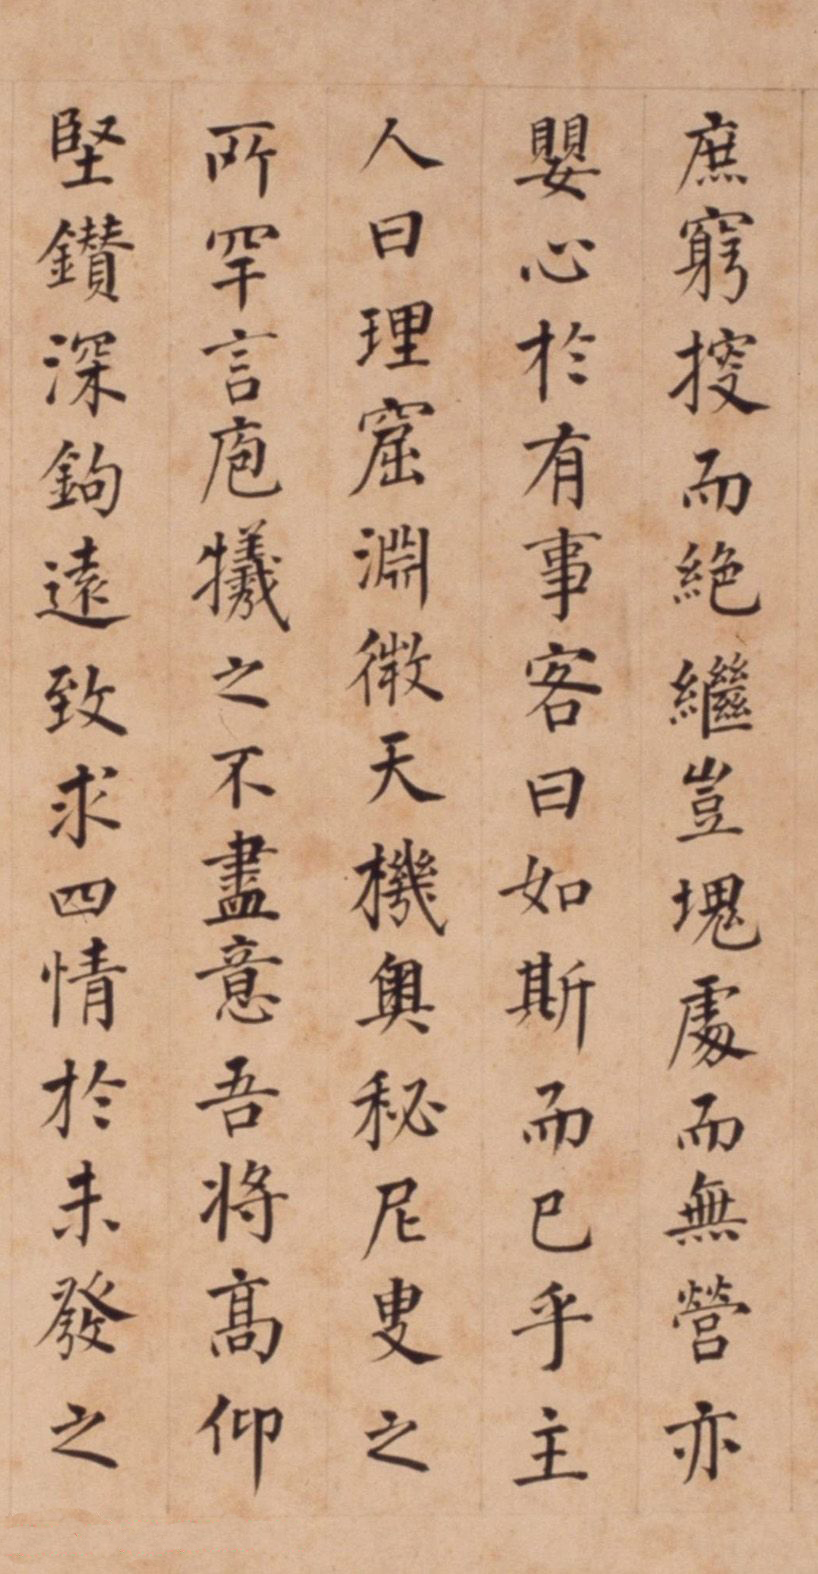 庶窮搜而絶繼豈塊處而無營亦
嬰心於有事客曰如斯而已乎主
人曰理窟淵微天機奥秘尼叟之
所罕言庖犧之不盡意吾將高仰
堅鑽深鉤遠致求四情於未發之